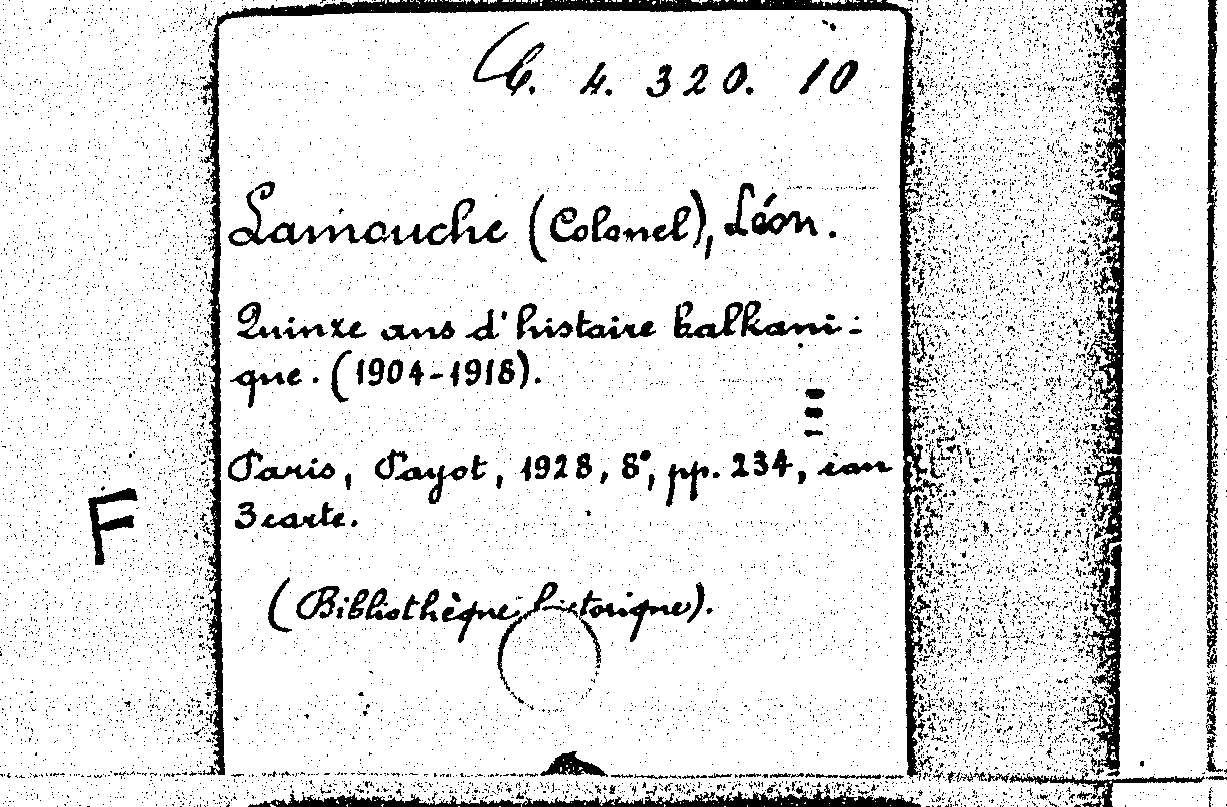 C. 4. 320. 10
Lamouche (Colonel), Léon.
Quinze ans d'histoire balkani-
que. (1904-1918).
Paris, Payot, 1928, 8°, pp. 234, con
3 carte.
F
(Bibliothèque historique).